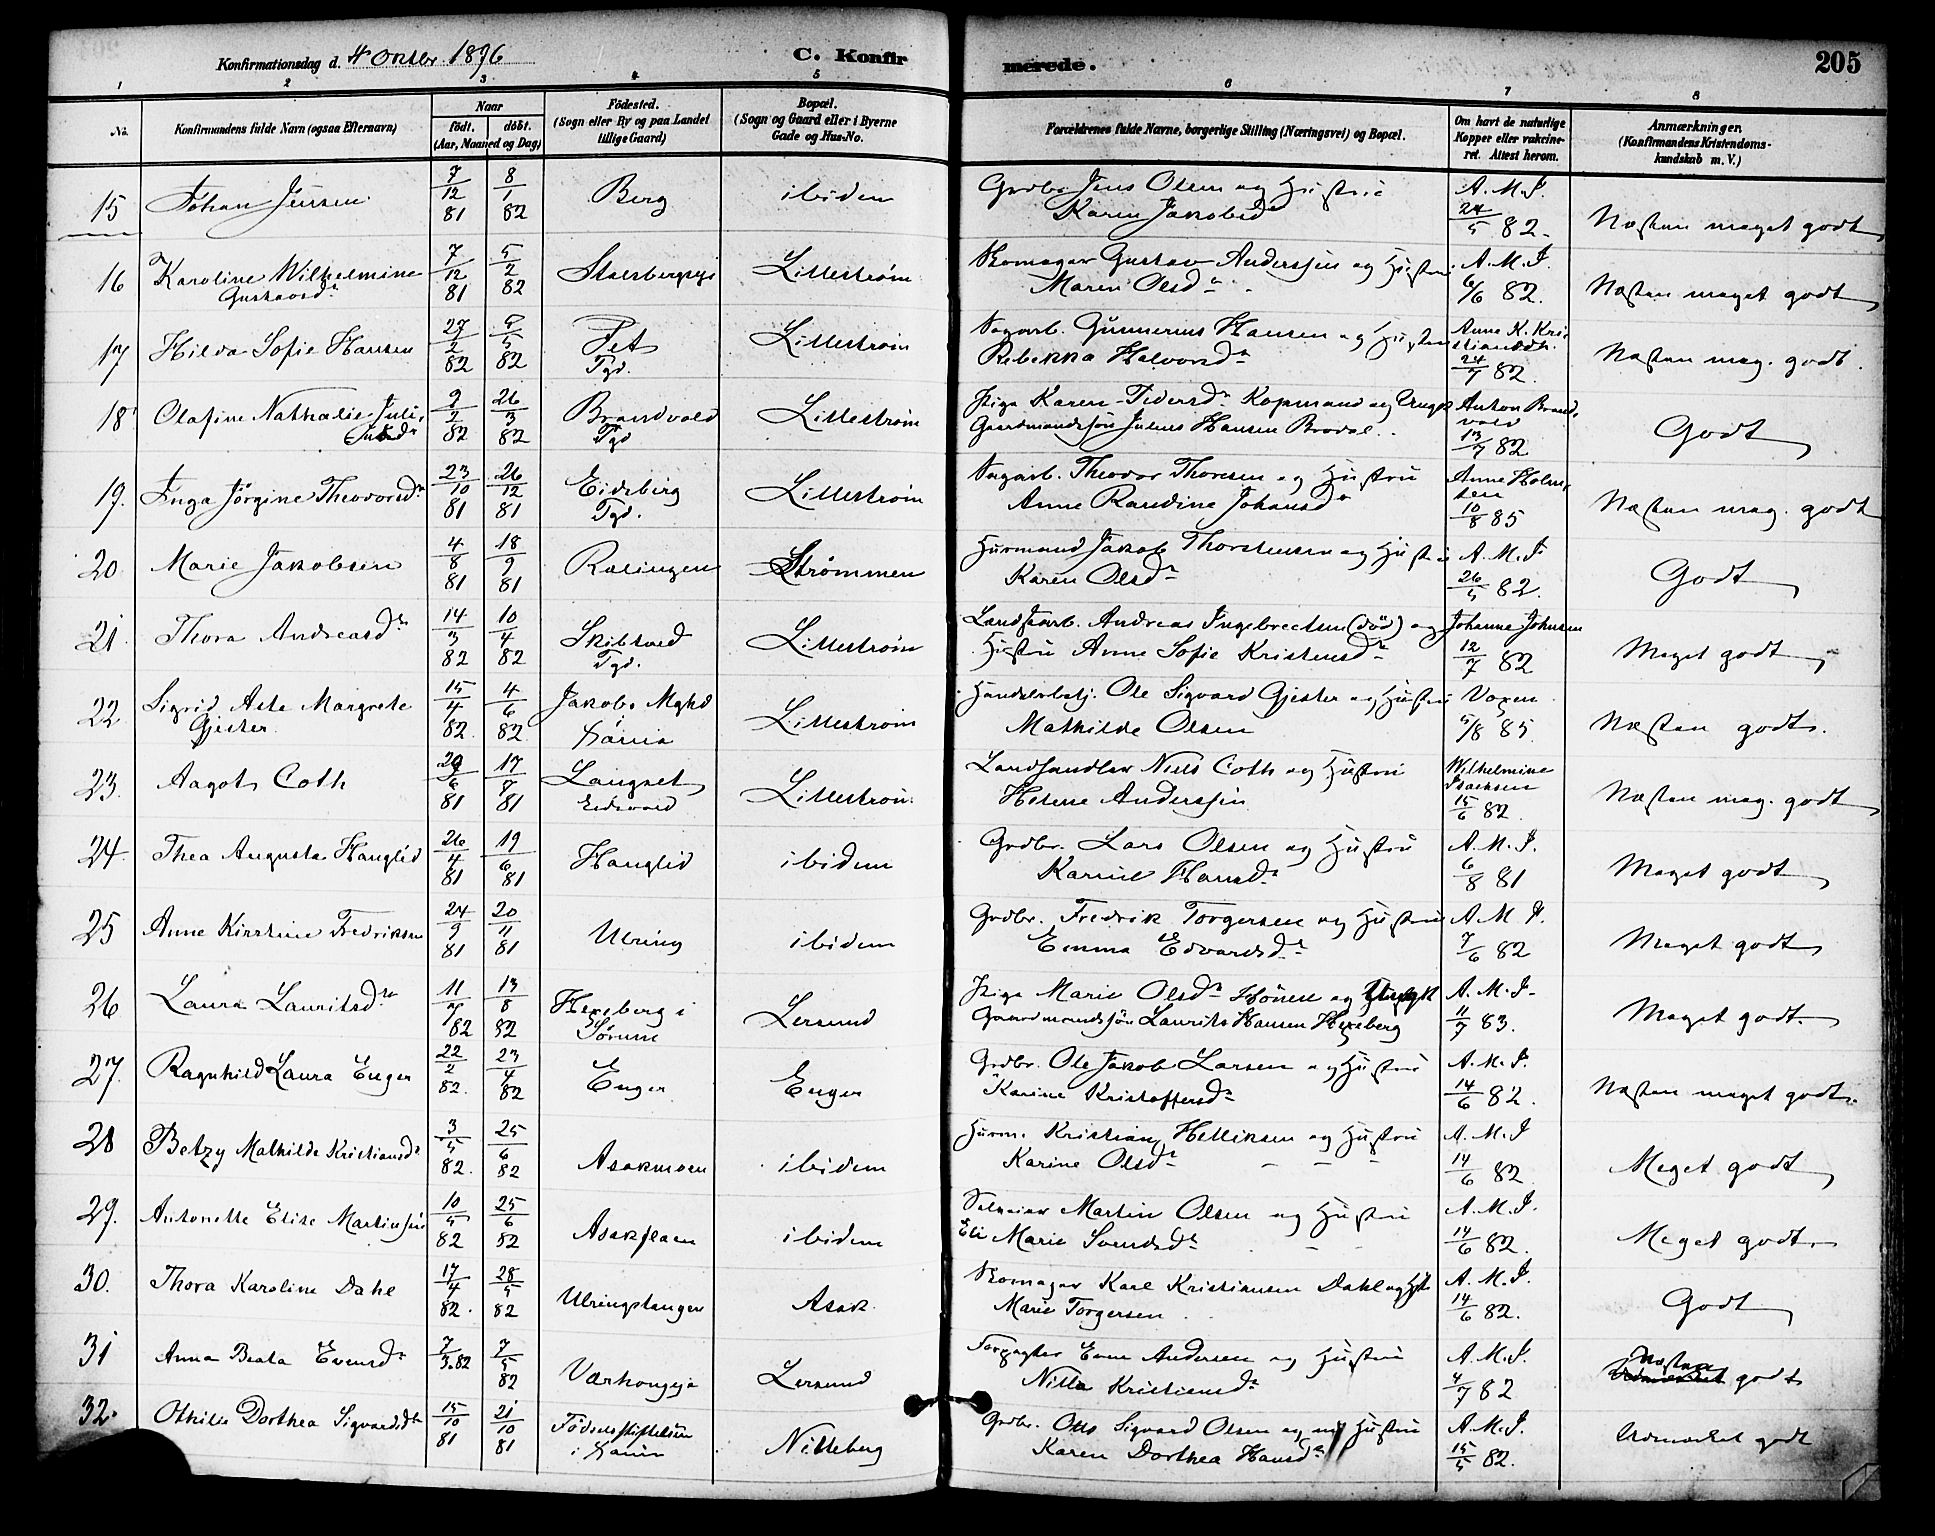 Konfirmationsdag d. 4 Oktbr. 1896
C. Konfirmerede.
205
1 2 3 4 5 6 7 8
No.
Konfirmandens fulde Navn (ogsaa Efternavn)
Naar
født. døbt.
(Aar, Maaned og Dag)
Fødested.
(Sogn eller By og paa Landet
tillige Gaard)
Bopæl.
(Sogn og Gaard eller i Byerne
Gade og Hus-No.
Forældrenes fulde Navne, borgerlige Stilling (Næringsvei) og Bopæl.
Om havt de naturlige
Kopper eller vakcine-
ret. Attest herom.
Anmærkninger.
(Konfirmandens Kristendoms-
kundskab m. V.)
15 Johan Jensen 7/12 81 8/1 82 Berg ibidem Grdbr. Jens Olsen og Hustru A. M. J.
Karen Jakobsd. 24/5 82. Næsten meget godt
16 Karoline Wilhelmine 7/12 81 5/2 82 Lillestrøm Skomager Gustav Anderssen og Hustru A. M. J.
Gustavsdr Maren Olsdr 6/6 82. Næsten meget godt
17 Hilda Sofie Hansen 27/2 82 82 Fet Lillestrøm Sagarb. Gunnerius Hansen og Hustru Anne K. Kri-
Tgd. Rebekka Halvorsdr stiansdtr. 24/7 82. Næsten meg. godt.
18 Olafine Nathalie Juli- 9/2 82 26/3 82 Brandvold Lillestrøm Pige Karen Pedersdr Kopmand og Ungk Anton Brand-
Tgd Gaardmandssøn Julius Hansen vold 13/7 82 Godt
19. Inga Jørgine Theodorsdr 23/10 81 26/12 81 Eidsberg Lillestrøm Sagarb. Theodor Thoresen og Hustru Anne Holm-
Tgd. Anne Randine Johansdr sen 10/8 85 Næsten meg. godt
20. Marie Jakobsen 4/8 81 18/9 81 Rælingen Strømmen Husmand Jakob Thorstensen og Hustru A. M. J.
Karen Olsdr 26/5 82. Godt
21. Thora Andreasdr 14/3 82 10/4 82 Skibtved Lillestrøm Andreas Ingebretsen (død) og Johanne Johnsen
Tgd. Hustru Anne Sofie Kristensdr 12/7 82 Meget godt
22 Sigrid Asta Margrete 15/4 82. 4/6 82 Jakobs Mghd Lillestrøm Handelsbetj. Ole Sigvard Gjester og Hustru
Gjester. Mathilde Olsen 5/8 85. Næsten godt.
23. Aagot Coth 29/6 81 17/7 81 Langset Lillestrøm. Landhandler Niels Coth og Hustru Wilhelmine
Eidsvold Helene Anderssen Isachsen 15/6 82. Næsten meg. godt
24. Thea Augusta Hauglid 26/4 81 19/6 81 Hauglid ibidem Grdbr. Lars Olsen og Hustru A. M. J.
Karine Hansdr. 6/8 81 Meget godt
25 Anne Kirstine Fredriksen 24/9 81 20/11 81 Ulring ibidem Grdbr. Fredrik Torgersen og Hustru A. M. J.
Emma Edvardsdr 7/6 82 Meget godt
26 Laura Lauritsdr 11/7 82 13/8 82 Hexeberg i Lersund Pige Marie Olsdr og Ungk A. M. J.
Sørum Gaardmandssøn Laurits Hansen Hexeberg 11/7 83. Meget godt.
27. Ragnhild Laura Enger 22/2 82. 23/4 82 Enger Enger Grdbr. Ole Jakob Larsen og Hustru A. M. J.
Karine Kristoffersdr 14/6 82. Næsten meget godt.
28 Betzy Mathilde Kristiansdr 3/5 82. 25/6 82 Asakmoen ibidem Husm. Kristian Helliksen og Hustru A. M. J
Karine Olsdr 14/6 82. Meget godt
29. Antonette Elise Martinsen 10/5 82 25/6 82 ibidem Selveier Martin Olsen og Hustru A. M. J.
Eli Marie Svendsdr 14/6 82. Meget godt.
30. Thora Karoline Dahl 17/4 82. 28/5 82 Ulringstangen Asak. Skomager Karl Kristiansen Dahl og Hst A. M. J.
Marie Torgersen. 14/6 82. Godt
31 Anna Beata Evensdr 7/3.82 7/5 82 Lersund Forpagter Even Andersen og Hustru A. M. J.
Nilla Kristiansdr 4/7 82 Næsten godt
32. Othilie Dorthea Sigvardsdtr 15/10 81 21/10 81 Fødselsstiftelsen Nitteberg Grdbr. Otto Sigvard Olsen og Hustru A. M. J.
Karen Dorthea Hansdr 15/5 82. Udmærket godt